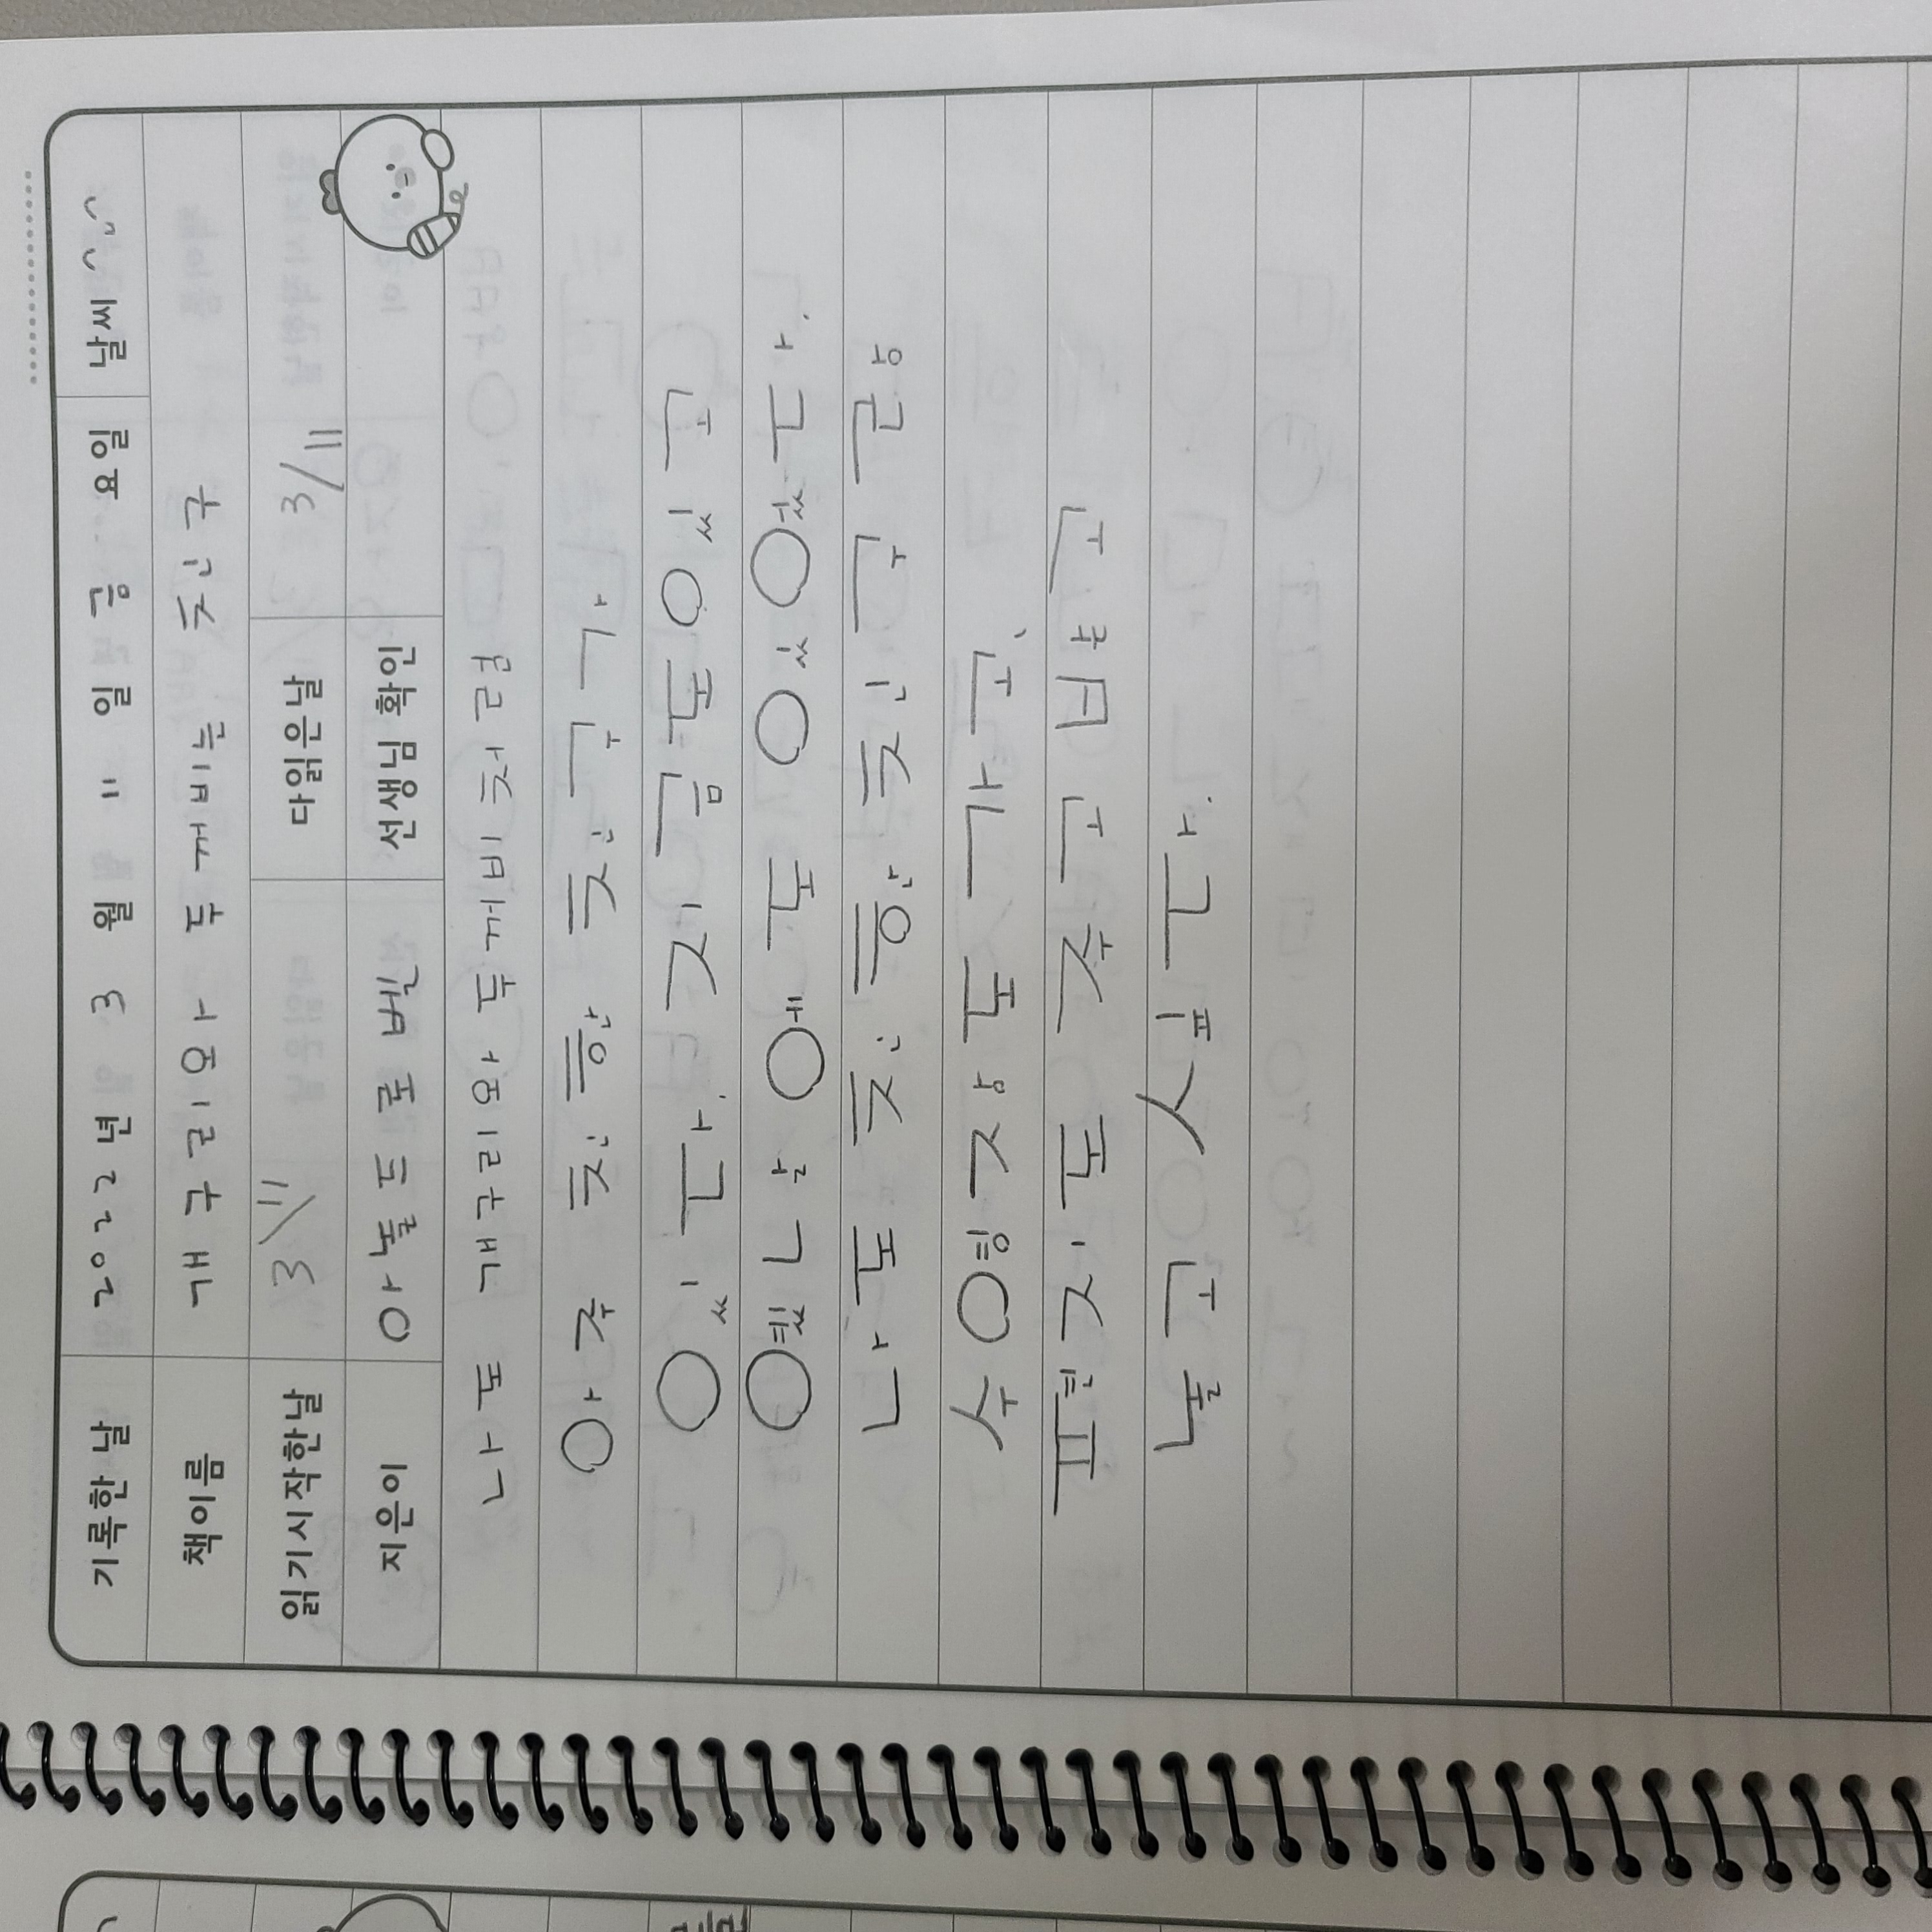 기록한 날 2022년 3월 11일 금요일 날씨 ^ᴗ^
책이름 개구리와 두꺼비는 친구
읽기시작한날 3\11 다읽은날 3/11
지은이 아놀드로벨 선생님 확인
나도 개구리와 두꺼비처럼
아주 친한 친구가
있다. 지금도있고
옜날에도 있었다.
나도 친한친구랑
수영장도 가고,
편지도 주고받고
놀고 싶다.